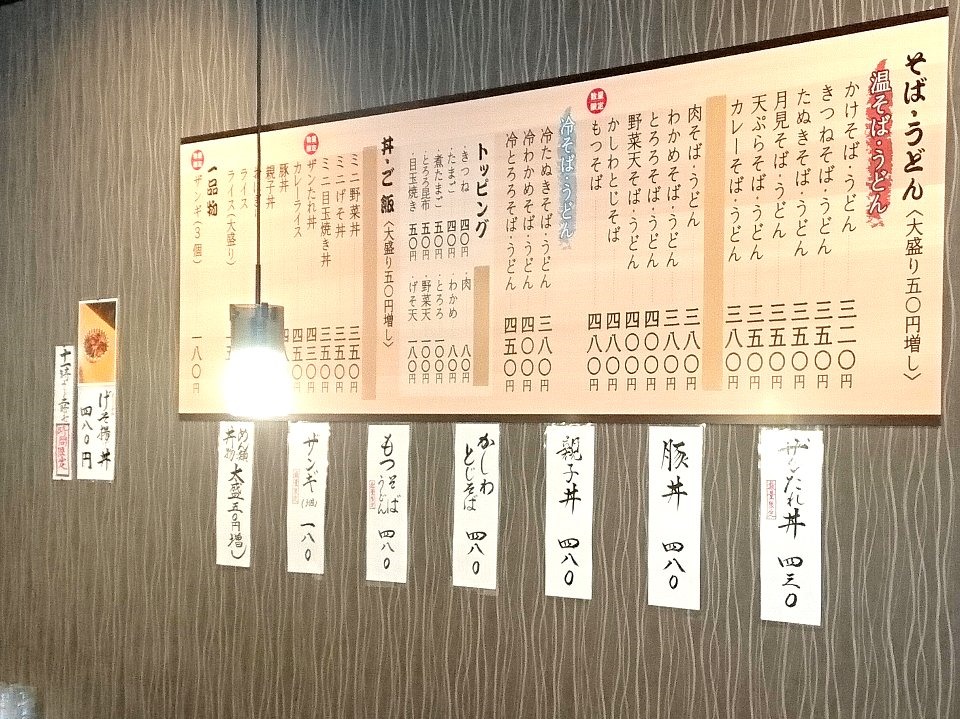 そば・うどん〈大盛り五〇円増し〉
温そば・うどん
かけそば・うどん 三二〇円
きつねそば・うどん 三五〇円
たぬきそば・うどん 三五〇円
月見そば・うどん 三五〇円
天ぷらそば・うどん 三八〇円
カレーそば・うどん 三八〇円
肉そば・うどん 三八〇円
わかめそば・うどん 四〇〇円
とろろそば・うどん 四〇〇円
野菜天そば・うどん 四〇〇円
かしわとじそば 四八〇円
数量限定
もつそば 四八〇円
冷そば・うどん
冷たぬきそば・うどん 三八〇円
冷わかめそば・うどん 四〇〇円
冷とろろそば・うどん 四五〇円
トッピング
・きつね 四〇円
・たまご 四〇円
・煮たまご 五〇円
・とろろ昆布 五〇円
・目玉焼き 五〇円
・肉 八〇円
・わかめ 八〇円
・とろろ 一〇〇円
・野菜天 一〇〇円
・げそ天 一八〇円
丼・ご飯〈大盛り五〇円増し〉
ミニ野菜丼 三五〇円
ミニげそ丼 三五〇円
ミニ目玉焼き丼 三五〇円
数量限定
ザンたれ丼 四三〇円
カレーライス 四八〇円
豚丼
親子丼
ライス
ライス(大盛り)
一品物
ザンギ(3個) 一八〇円
ザンたれ丼 四三〇
数量限定
豚丼 四八〇
親子丼 四八〇
かしわとじそば 四八〇
もつそば うどん 四八〇
数量限定
ザンギ(3個) 一八〇
数量限定
めん類 丼物 大盛五〇円増し
四八〇円
時間限定